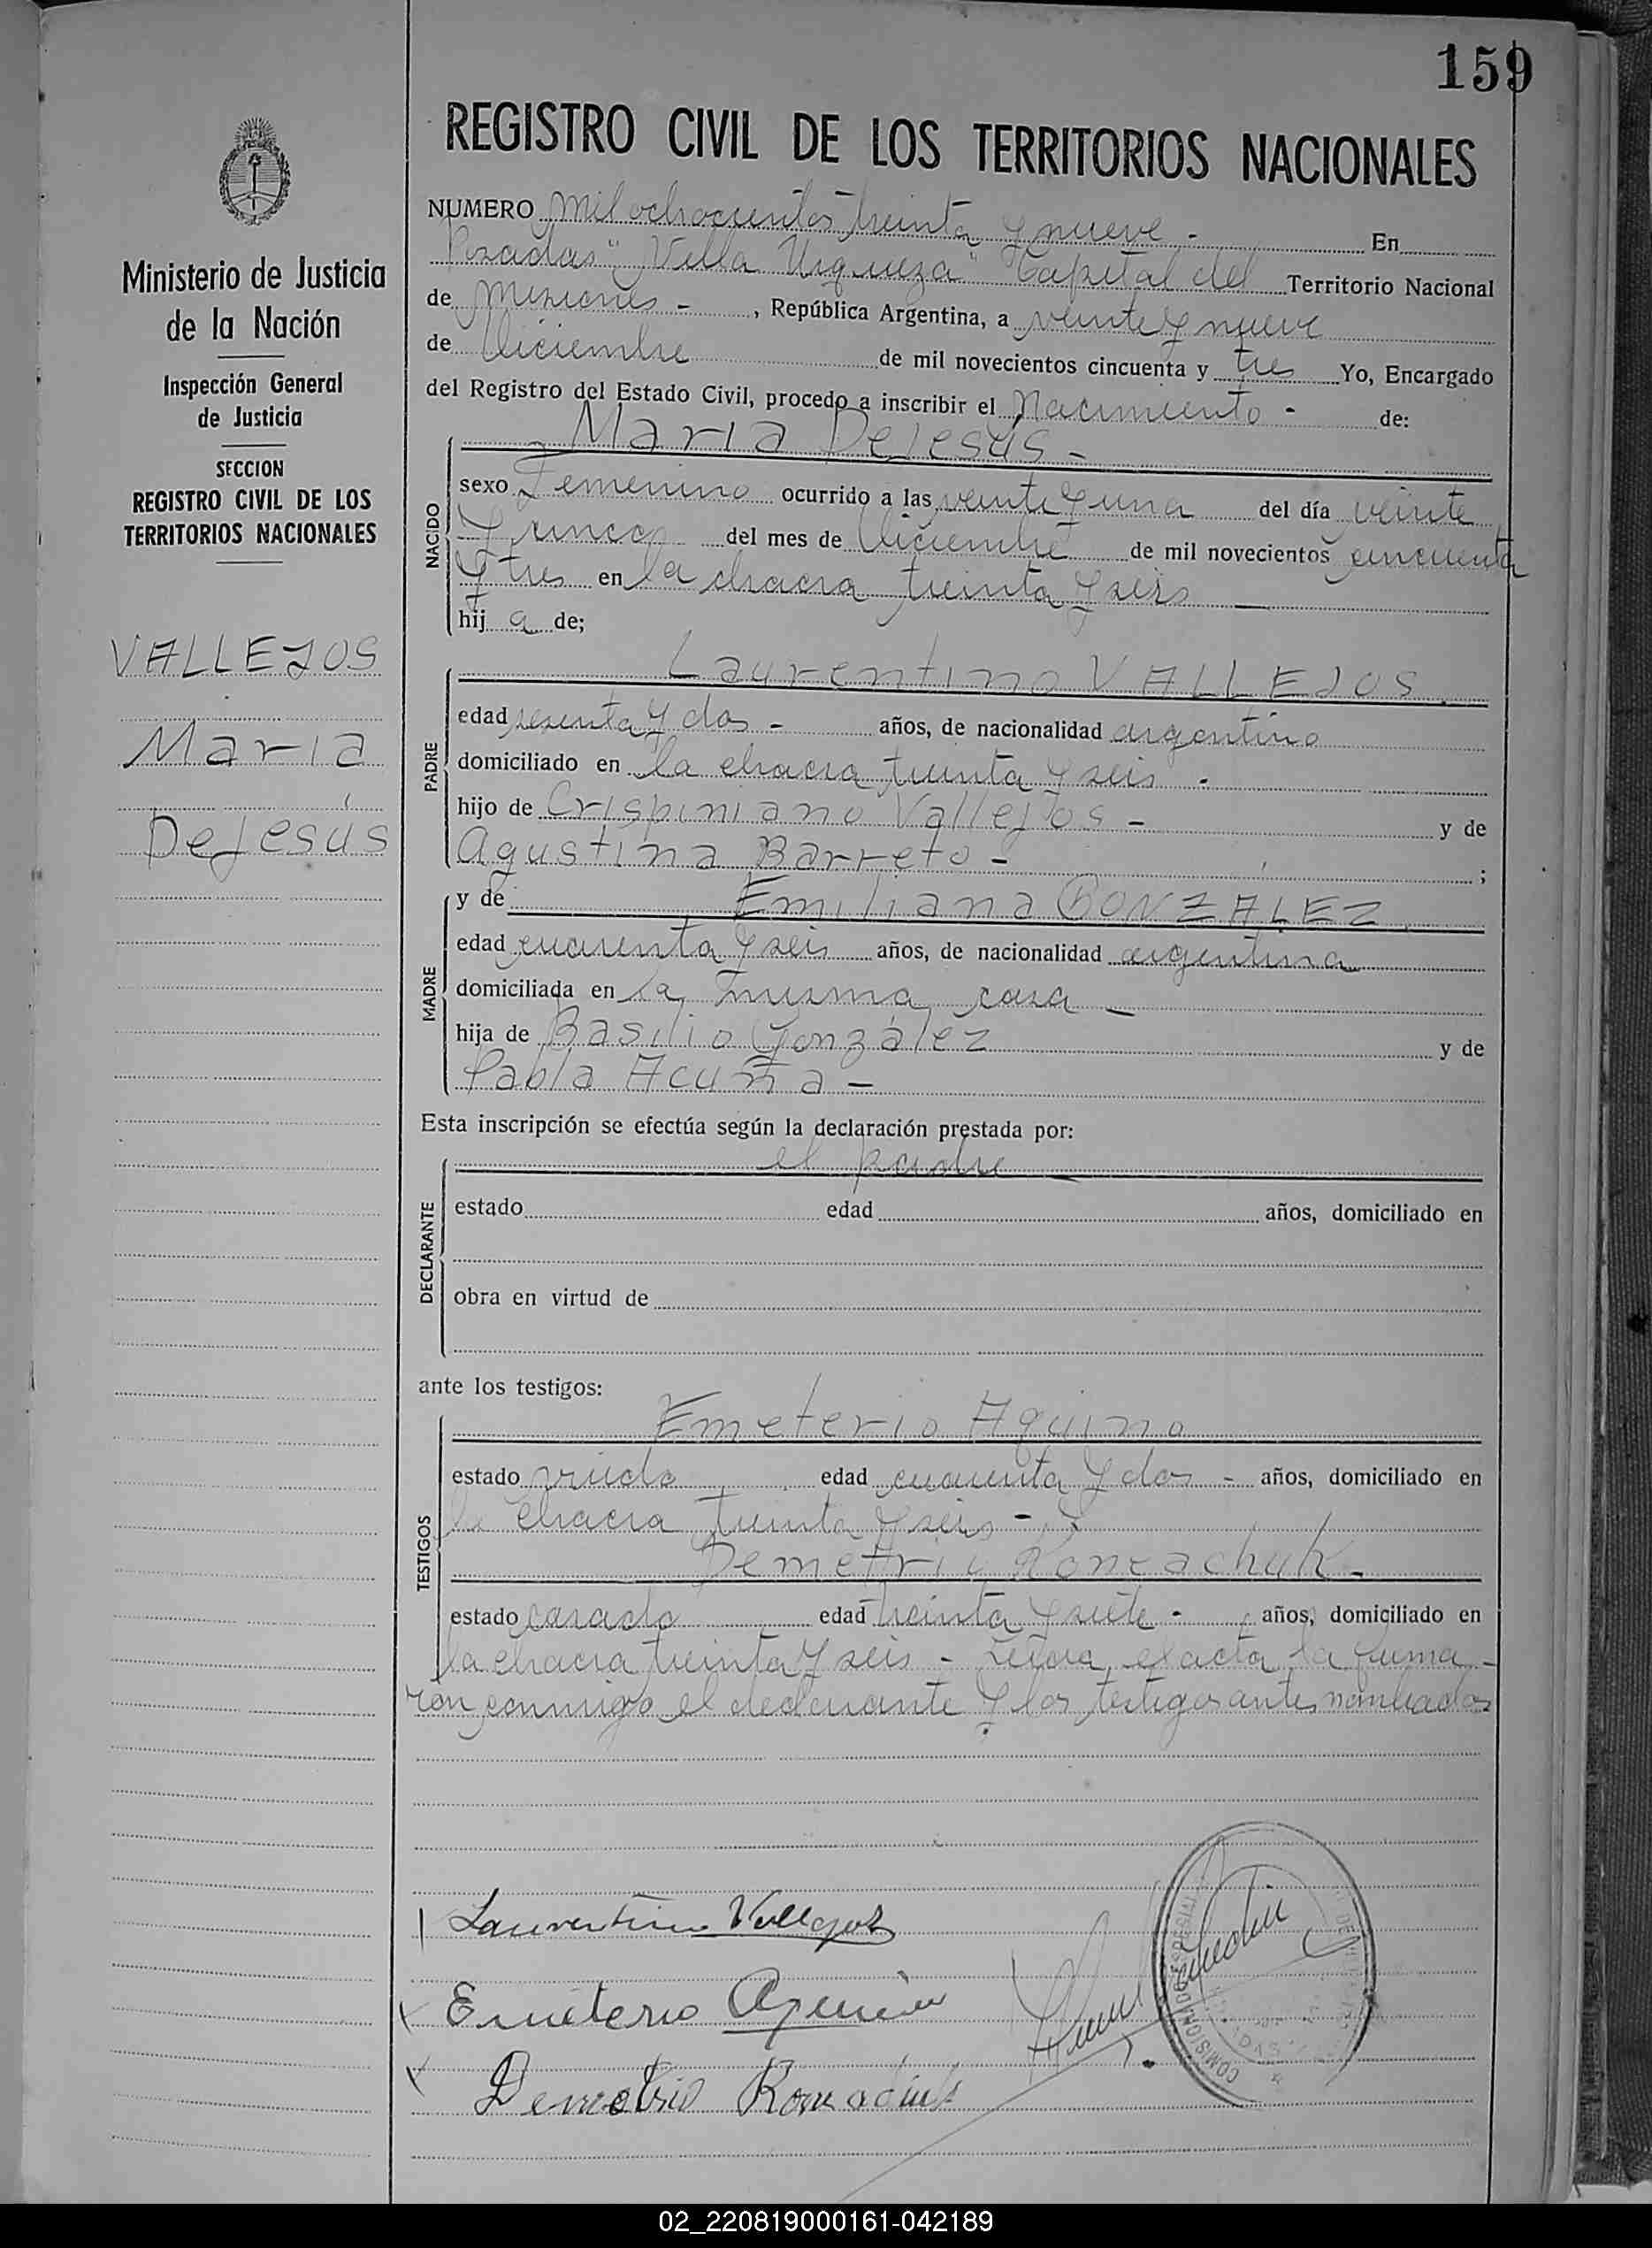 159
REGISTRO CIVIL DE LOS TERRITORIOS NACIONALES
Ministerio de Justicia
de la Nación
Inspección General
de Justicia
SECCION
REGISTRO CIVIL DE LOS
TERRITORIOS NACIONALES
VALLEJOS
María
DeJesús
NUMERO mil ochocientos treinta y nueve - En
Posadas "Villa Urquiza" Capital del Territorio Nacional
de Misiones - , República Argentina, a veinte y nueve
de Diciembre de mil novecientos cincuenta y tres Yo, Encargado
del Registro del Estado Civil, procedo a inscribir el Nacimiento - de:
María DeJesús -
NACIDO
sexo Femenino ocurrido a las veinte y una del día veinte
y cinco del mes de Diciembre de mil novecientos cincuenta
y tres en la chacra treinta y seis
hij a de;
PADRE
Laurentino VALLEJOS
edad sesenta y dos - años, de nacionalidad argentino
domiciliado en la chacra treinta y seis -
hijo de Crispiniano Vallejos - y de
Agustina Barreto - ;
MADRE
y de Emiliana GONZALEZ
edad cuarenta y seis años, de nacionalidad argentina
domiciliada en la misma casa -
hija de Basilio González y de
Pabla Acuña -
Esta inscripción se efectúa según la declaración prestada por:
DECLARANTE
el padre
estado edad años, domiciliado en
obra en virtud de
ante los testigos:
TESTIGOS
Emeterio Aquino
estado viudo edad cuarenta y dos - años, domiciliado en
la chacra treinta y seis - y
Demetrio
estado casado edad treinta y siete - años, domiciliado en
la chacra treinta y seis - Leída el acta la firma-
ron conmigo el declarante y los testigos antes nombrados
Laurentino Vallejos
Emeterio Aquino
Demetrio
COMISION
02_220819000161-042189